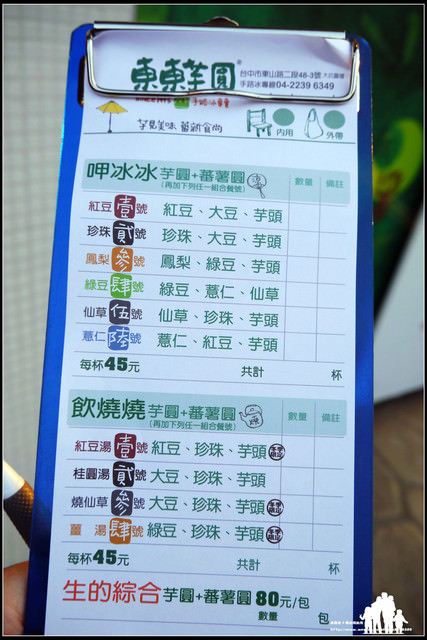 東東芋圓®
台中市東山路二段48-3號 大坑圓環
手路冰專線04-2239 6349
手路冰專賣
芋見美味 蕃新食尚
內用
外帶
呷冰冰 芋圓+蕃薯圓
(再加下列任一組合餐號)
數量 備註
紅豆 壹號 紅豆、大豆、芋頭
珍珠 貳號 珍珠、大豆、芋頭
鳳梨 參號 鳳梨、綠豆、芋頭
綠豆 肆號 綠豆、薏仁、仙草
仙草 伍號 仙草、珍珠、芋頭
薏仁 陸號 薏仁、紅豆、芋頭
每杯45元 共計 杯
飲燒燒 芋圓+蕃薯圓
(再加下列任一組合餐號)
數量 備註
紅豆湯 壹號 紅豆、珍珠、芋頭
桂圓湯 貳號 大豆、珍珠、芋頭
燒仙草 參號 大豆、珍珠、芋頭
薑湯 肆號 綠豆、珍珠、芋頭
每杯45元 共計 杯
生的綜合 芋圓+蕃薯圓 80元/包
數量 包